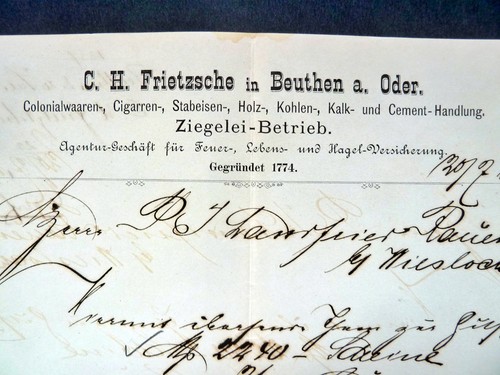 C. H. Frietzsche in Beuthen a. Oder.
Colonialwaaren-, Cigarren-, Stabeisen-, Holz-, Kohlen-, Kalk- und Cement-Handlung.
Ziegelei-Betrieb.
Agentur-Geschäft für Feuer-, Lebens- und Hagel-Versicherung.
Gegründet 1774.
20/7
Herrn P J Landfrier
b/ Wiesloch
Hiermit übersende Ihnen zur
M 2240 –